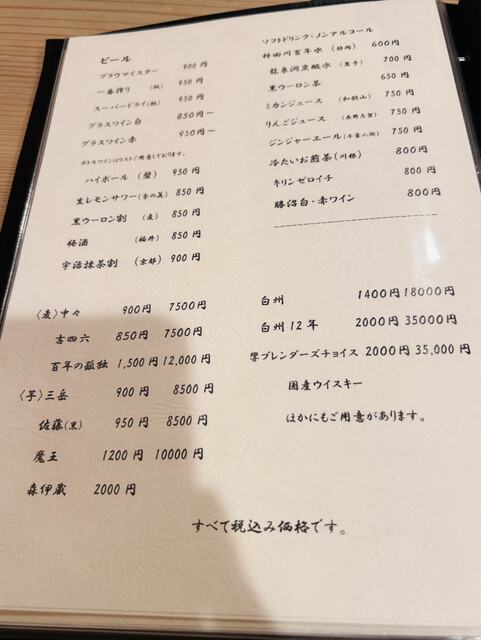 ビール
ブラウマイスター 900円
一番搾り (瓶) 950円
スーパードライ(瓶) 950円
グラスワイン白 850円～
グラスワイン赤 950円～
ボトルワインはリストご用意しております。
ハイボール (碧) 950円
生レモンサワー(季の美) 850円
黒ウーロン割 (麦) 850円
梅酒 (福井) 850円
宇治抹茶割 (京都) 900円
〈麦〉中々 900円 7500円
吉四六 850円 7500円
百年の孤独 1,500円 12,000円
〈芋〉三岳 900円 8500円
佐藤(黒) 950円 8500円
魔王 1200円 10000円
森伊蔵 2000円
ソフトドリンク・ノンアルコール
柿田川百年水 (静岡) 600円
龍泉洞炭酸水 (岩手) 700円
黒ウーロン茶 650円
ミカンジュース (和歌山) 750円
りんごジュース (長野志賀) 750円
ジンジャーエール(千葉八街) 750円
冷たいお煎茶(川根) 800円
キリンゼロイチ 800円
勝沼白・赤ワイン 800円
白州 1400円 18000円
白州12年 2000円 35000円
響ブレンダーズチョイス 2000円 35,000円
国産ウイスキー
ほかにもご用意があります。
すべて税込み価格です。